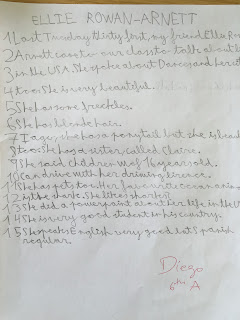 ELLIE ROWAN-ARNETT
1 Last Tuesday thirty first, my friend Ellie Ro
2 Arnett came to our class to talk about
3 in the USA. She spoke about Dances and her
4 too. She is very beautiful.
5 She has some freckles.
6 She has blonde hair.
7 she has a ponytail but she is
8 too. She has a sister called Claire.
9 She said children of 16 years old.
10 Can drive with her driving licence.
11 She has pets too. Her favourite ocean animal
12 is the shark. She likes
13 She did a powerpoint about her life in the U
14 She is very good student to his country.
15 She speaks English very good but Spanish
regular.
Diego
6th A